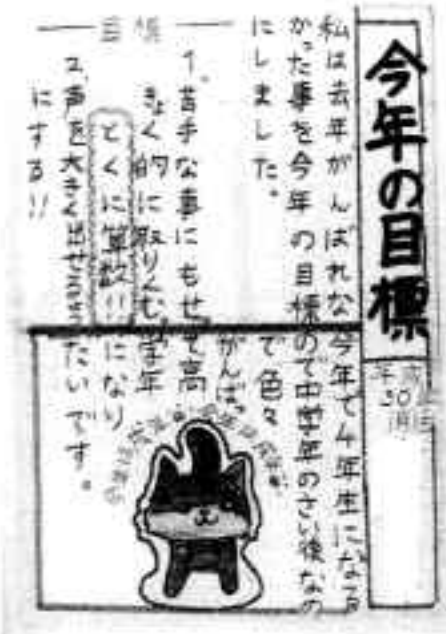 今年の目標
30
私は去年がんばれな
かった事を今年の目標
にしました。
目標
1。苦手な事にもせっ
きょく的に取りくむ。
とくに算数!!
2、声を大きく出せるよう
にする!!
今年で4年生になる
ので中学年のさい後なの
で色々
がんばっ
て高
学年
になり
たいです。
今年は戌年
今年は戌年